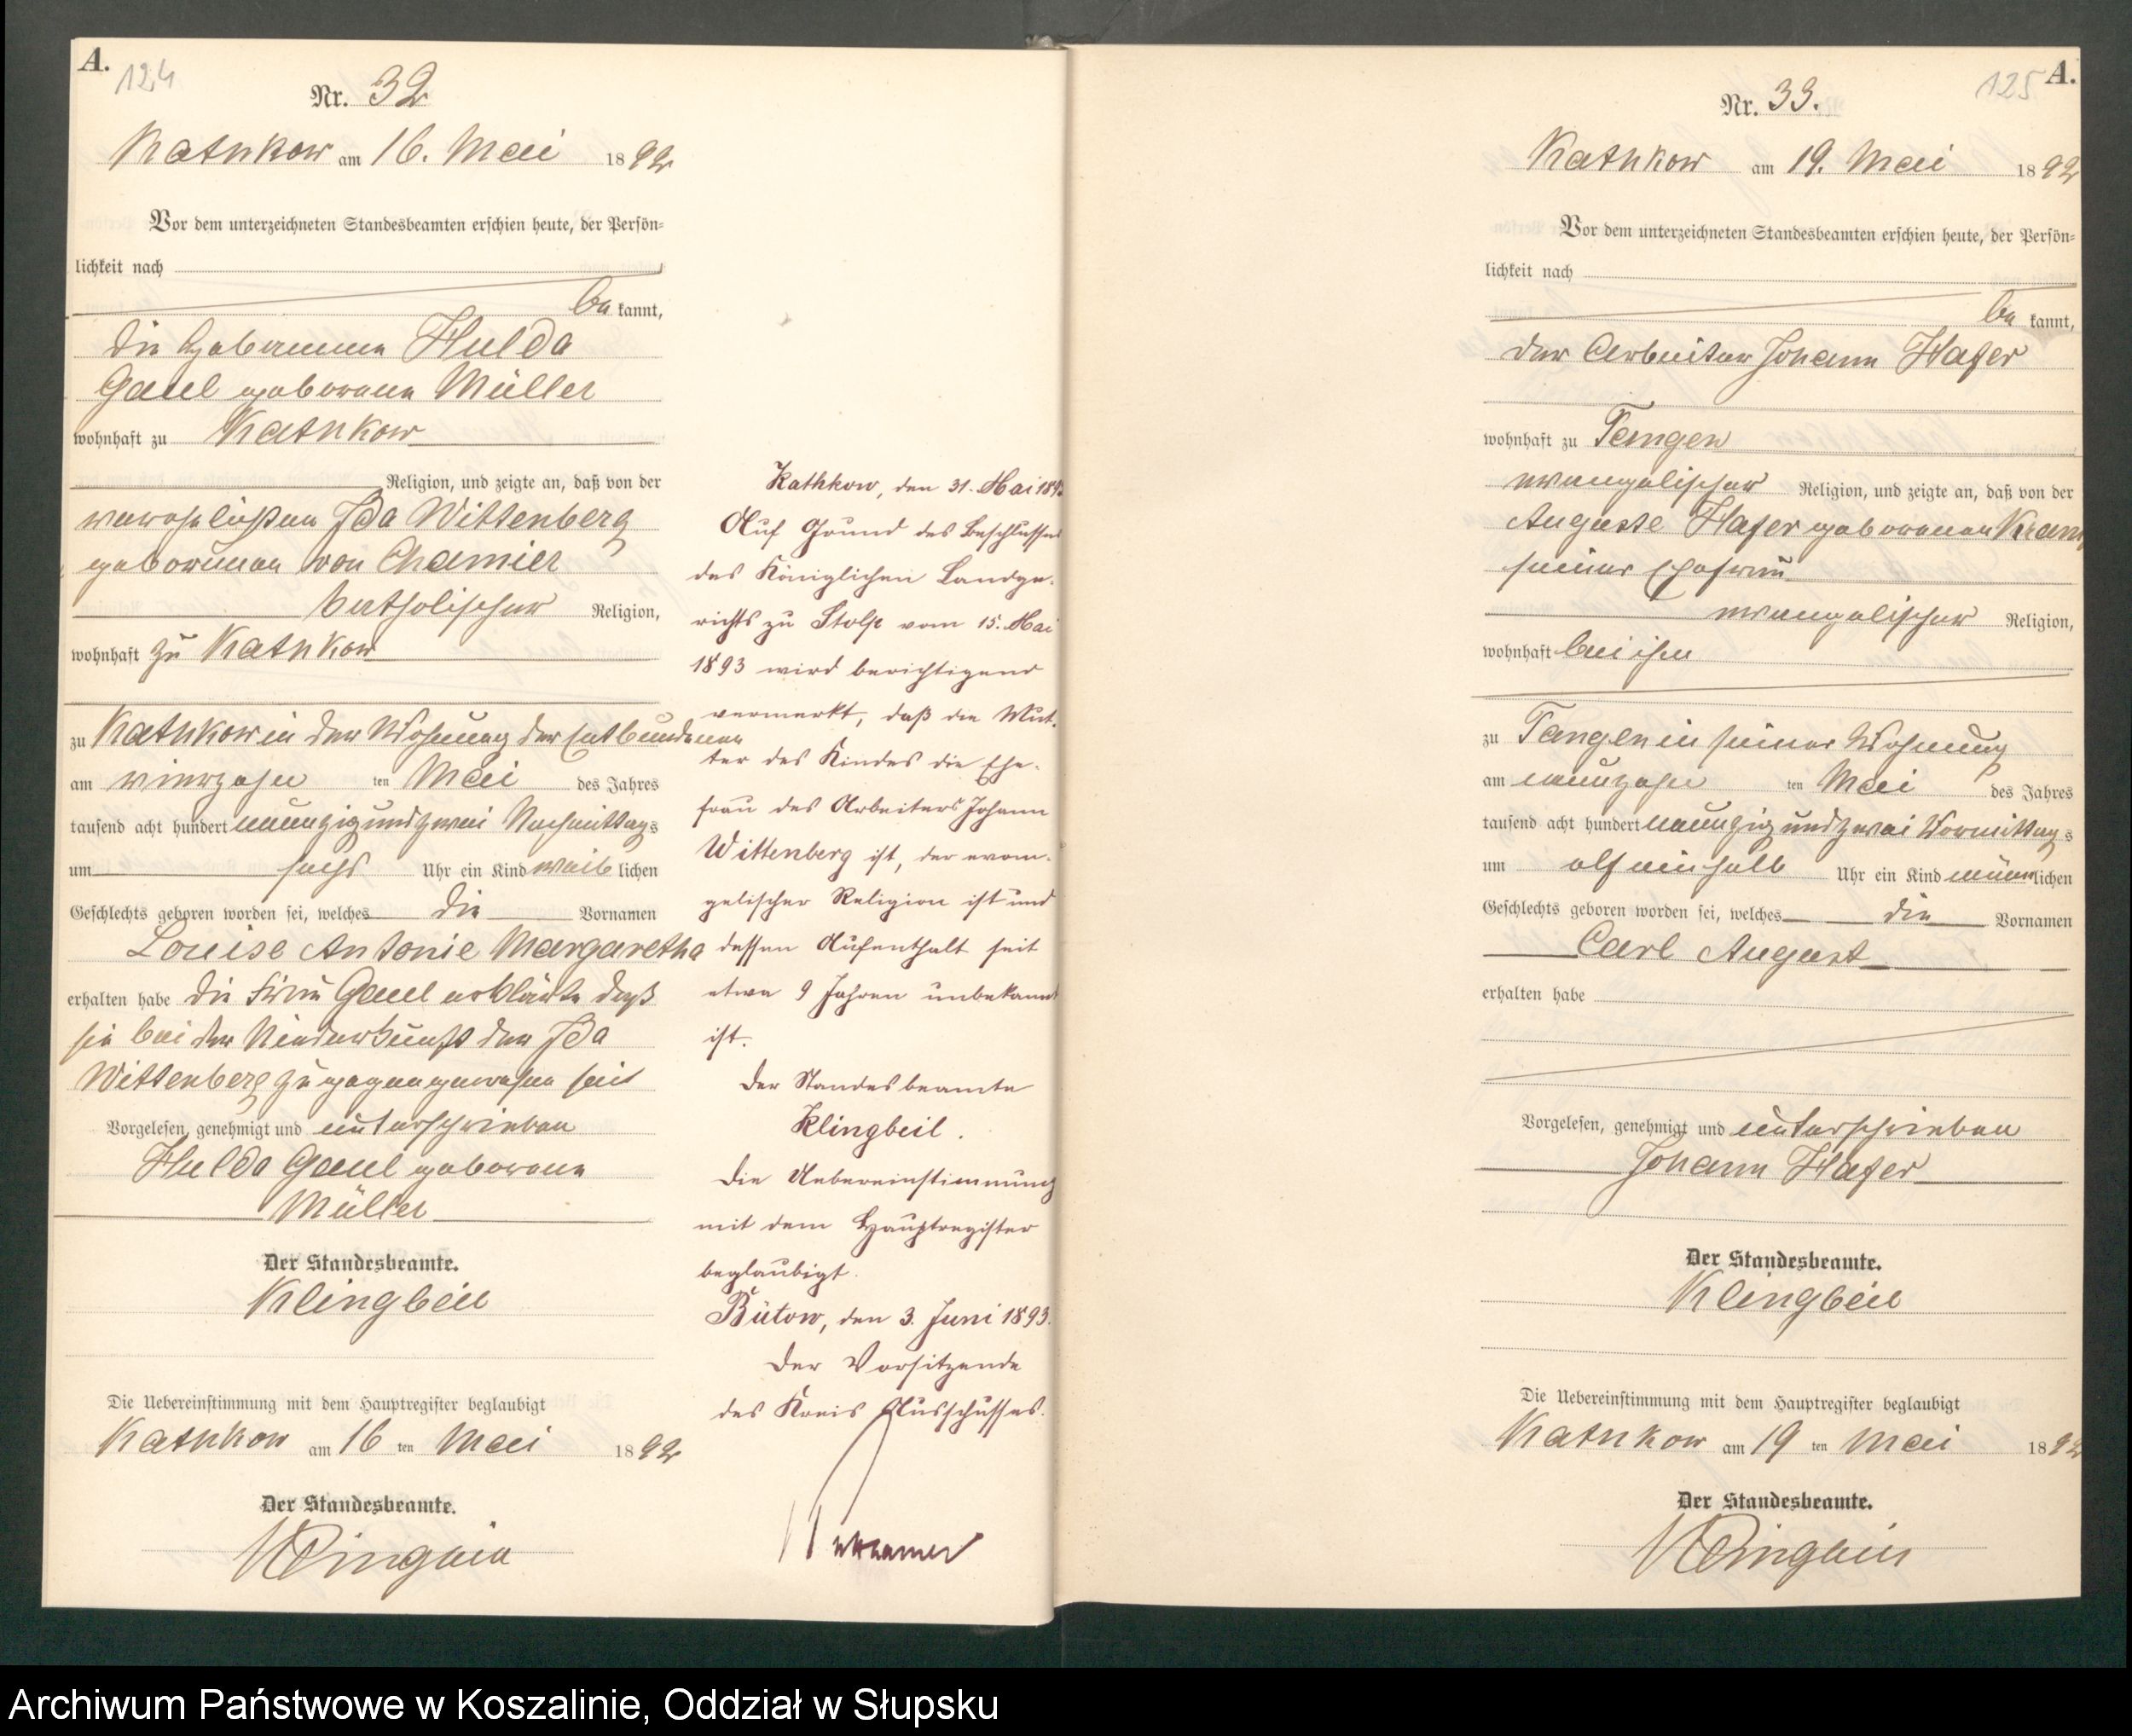 A.
124
Nr. 32
Kathkow am 16. Mai 1892
Vor dem unterzeichneten Standesbeamten erschien heute, der Persön-
lichkeit nach
bekannt,
die Hebamme Hulda
Gaul geborene Müller
wohnhaft zu Kathkow
Religion, und zeigte an, daß von der
verehelichten Ida Wittenberg
geborenen von Chamier
katholischer Religion,
wohnhaft zu Kathkow
zu Kathkow in der Wohnung der Entbundenen
am vierzehn ten Mai des Jahres
tausend acht hundert neunzig und zwei Nachmittags
um sechs Uhr ein Kind weiblichen
Geschlechts geboren worden sei, welches die Vornamen
Louise Antonie Margaretha
erhalten habe die Frau Gaul erklärte daß
sie bei der Niederkunft der Ida
Wittenberg zugegen gewesen sei
Vorgelesen, genehmigt und unterschrieben
Hulda Gaul geborene
Müller
Der Standesbeamte.
Klingbeil
Die Uebereinstimmung mit dem Hauptregister beglaubigt
Kathkow am 16 ten Mai 1892
Der Standesbeamte.
Klingbeil
Kathkow, den 31. Mai 1893
Auf Grund des Beschlusses
des Königlichen Landge-
richts zu Stolp vom 15. Mai
1893 wird berichtigend
vermerkt, daß die Mut-
ter des Kindes die Ehe-
frau des Arbeiters Johann
Wittenberg ist, der evan-
gelischer Religion ist und
dessen Aufenthalt seit
etwa 9 Jahren unbekannt
ist.
Der Standesbeamte
Klingbeil.
Die Uebereinstimmung
mit dem Hauptregister
beglaubigt.
Bütow, den 3. Juni 1893.
Der Vorsitzende
des Kreis Ausschusses.
A.
125
Nr. 33.
Kathkow am 19. Mai 1892
Vor dem unterzeichneten Standesbeamten erschien heute, der Persön-
lichkeit nach
bekannt,
der Arbeiter Johann Hafer
wohnhaft zu Tangen
evangelischer Religion, und zeigte an, daß von der
Auguste Hafer geborenen
seiner Ehefrau
evangelischer Religion,
wohnhaft bei ihm
zu Tangen in seiner Wohnung
am neunzehn ten Mai des Jahres
tausend acht hundert neunzig und zwei Vormittags
um elf einhalb Uhr ein Kind männlichen
Geschlechts geboren worden sei, welches die Vornamen
Carl August
erhalten habe
Vorgelesen, genehmigt und unterschrieben
Johann Hafer
Der Standesbeamte.
Klingbeil
Die Uebereinstimmung mit dem Hauptregister beglaubigt
Kathkow am 19 ten Mai 1892
Der Standesbeamte.
Klingbeil
Archiwum Państwowe w Koszalinie, Oddział w Słupsku